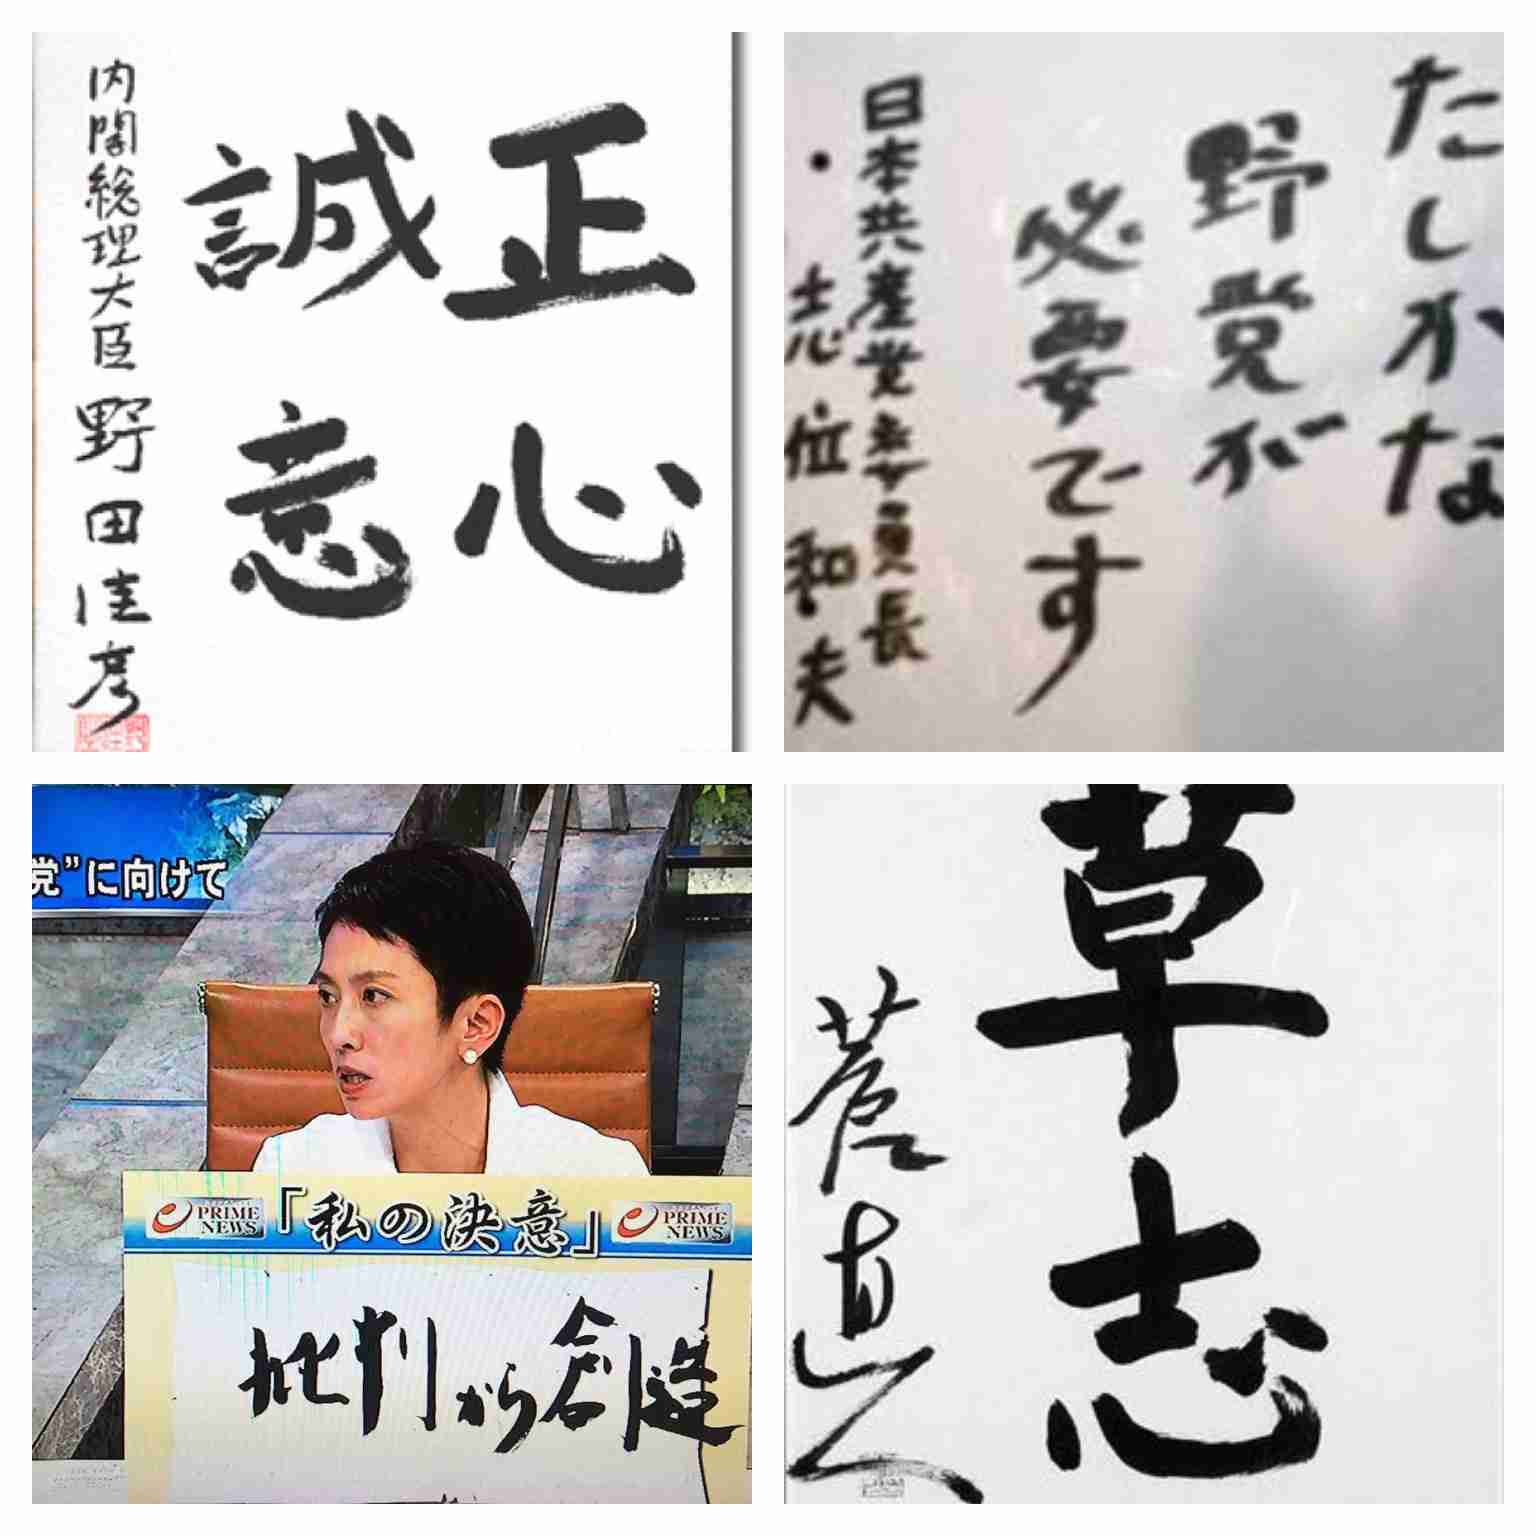 正心
誠意
内閣総理大臣 野田佳彦
たしかな
野党が
必要です
日本共産党委員長
・志位和夫
党”に向けて
PRIME NEWS
「私の決意」
PRIME NEWS
批判から創造
草志
菅直人